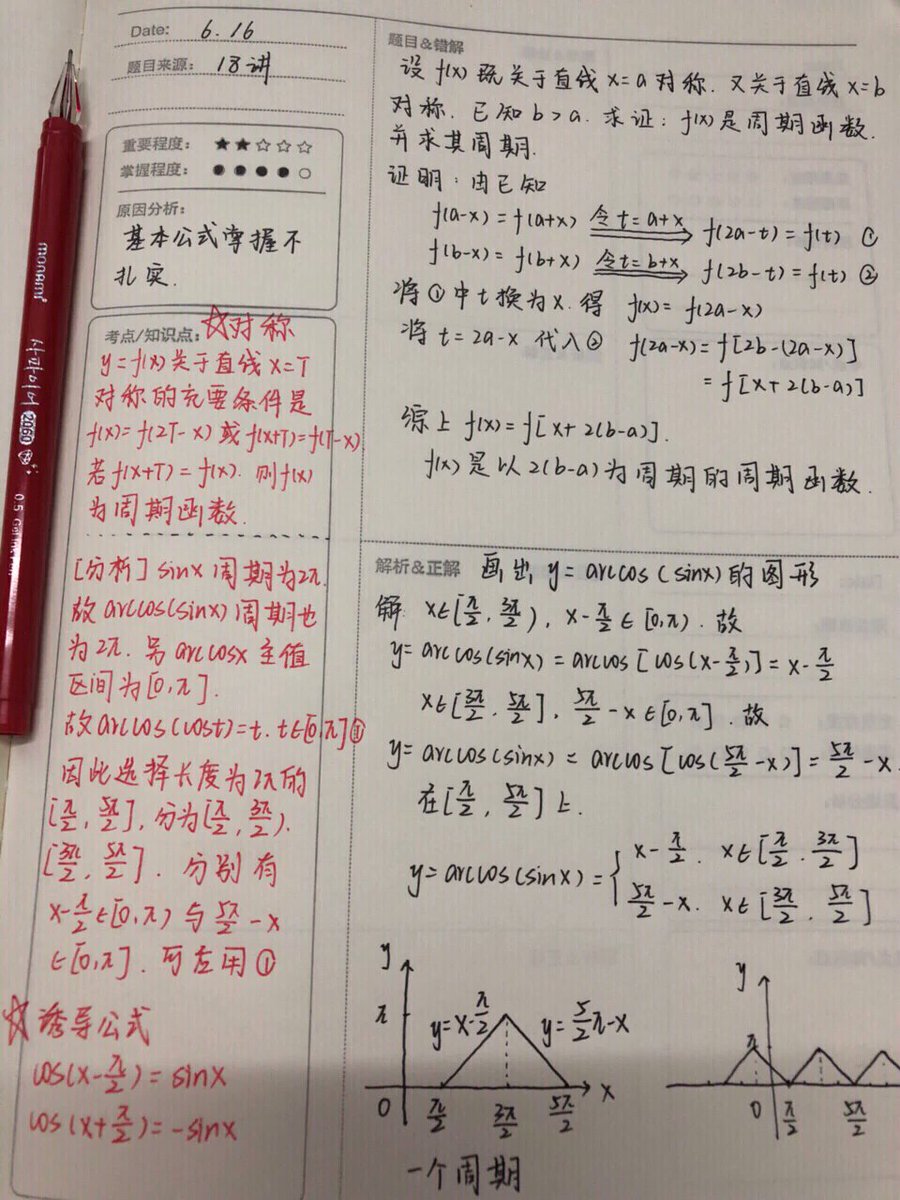 Date: 6.16
题目来源: 18讲
重要程度: ★★☆☆☆
掌握程度: ●●●●○
原因分析:
基本公式掌握不
扎实.
考点/知识点: ☆对称
y=f(x)关于直线x=T
对称的充要条件是
f(x)=f(2T-x)或f(x+T)=f(T-x)
若f(x+T)=f(x).则f(x)
为周期函数.
[分析] sinx周期为2π.
故arccos(sinx)周期也
为2π.另arccosx主值
区间为[0,π].
故arccos(cost)=t.t∈[0,π]①
因此选择长度为2π的
[π/2, 5π/2],分为[π/2, 3π/2).
[3π/2, 5π/2].分别有
x-π/2∈[0,π)与5π/2-x
∈[0,π].可应用①
☆诱导公式
cos(x-π/2)=sinx
cos(x+π/2)=-sinx
题目&错解
设f(x)既关于直线x=a对称.又关于直线x=b
对称.已知b>a.求证:f(x)是周期函数.
并求其周期.
证明:由已知
f(a-x)=f(a+x) 令t=a+x ⟹ f(2a-t)=f(t) ①
f(b-x)=f(b+x) 令t=b+x ⟹ f(2b-t)=f(t) ②
将①中t换为x.得 f(x)=f(2a-x)
将t=2a-x代入② f(2a-x)=f[2b-(2a-x)]
=f[x+2(b-a)]
综上f(x)=f[x+2(b-a)].
f(x)是以2(b-a)为周期的周期函数.
解析&正解 画出y=arccos(sinx)的图形
解. x∈[π/2, 3π/2), x-π/2∈[0,π).故
y=arccos(sinx)=arccos[cos(x-π/2)]=x-π/2
x∈[3π/2, 5π/2], 5π/2-x∈[0,π].故
y=arccos(sinx)=arccos[cos(5π/2-x)]=5π/2-x.
在[π/2, 5π/2]上.
y=arccos(sinx)={
x-π/2. x∈[π/2, 3π/2]
5π/2-x. x∈[3π/2, 5π/2]
y
π
y=x-π/2
y=5/2π-x
x
0 π/2 3π/2 5π/2
一个周期
y
π
0 π/2 5π/2
monami
사파이어
2060
0.5